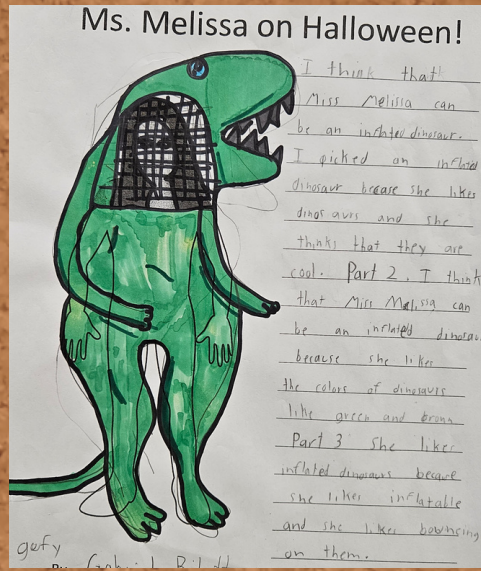 Ms. Melissa on Halloween!
I think that
Miss Melissa can
be an inflated dinosaur.
I picked an inflated
dinosaur becase she likes
dinosaurs and she
thinks that they are
cool. Part 2. I think
that Miss Melissa can
be an inflated dinosaur
because she likes
the colors of dinosaurs
like green and brown
Part 3 She likes
inflated dinosaurs becaure
she likes inflatable
and she likes bownsing
on them.
gefy